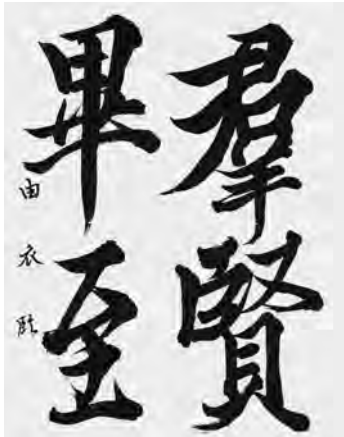 羣賢
畢至
由衣